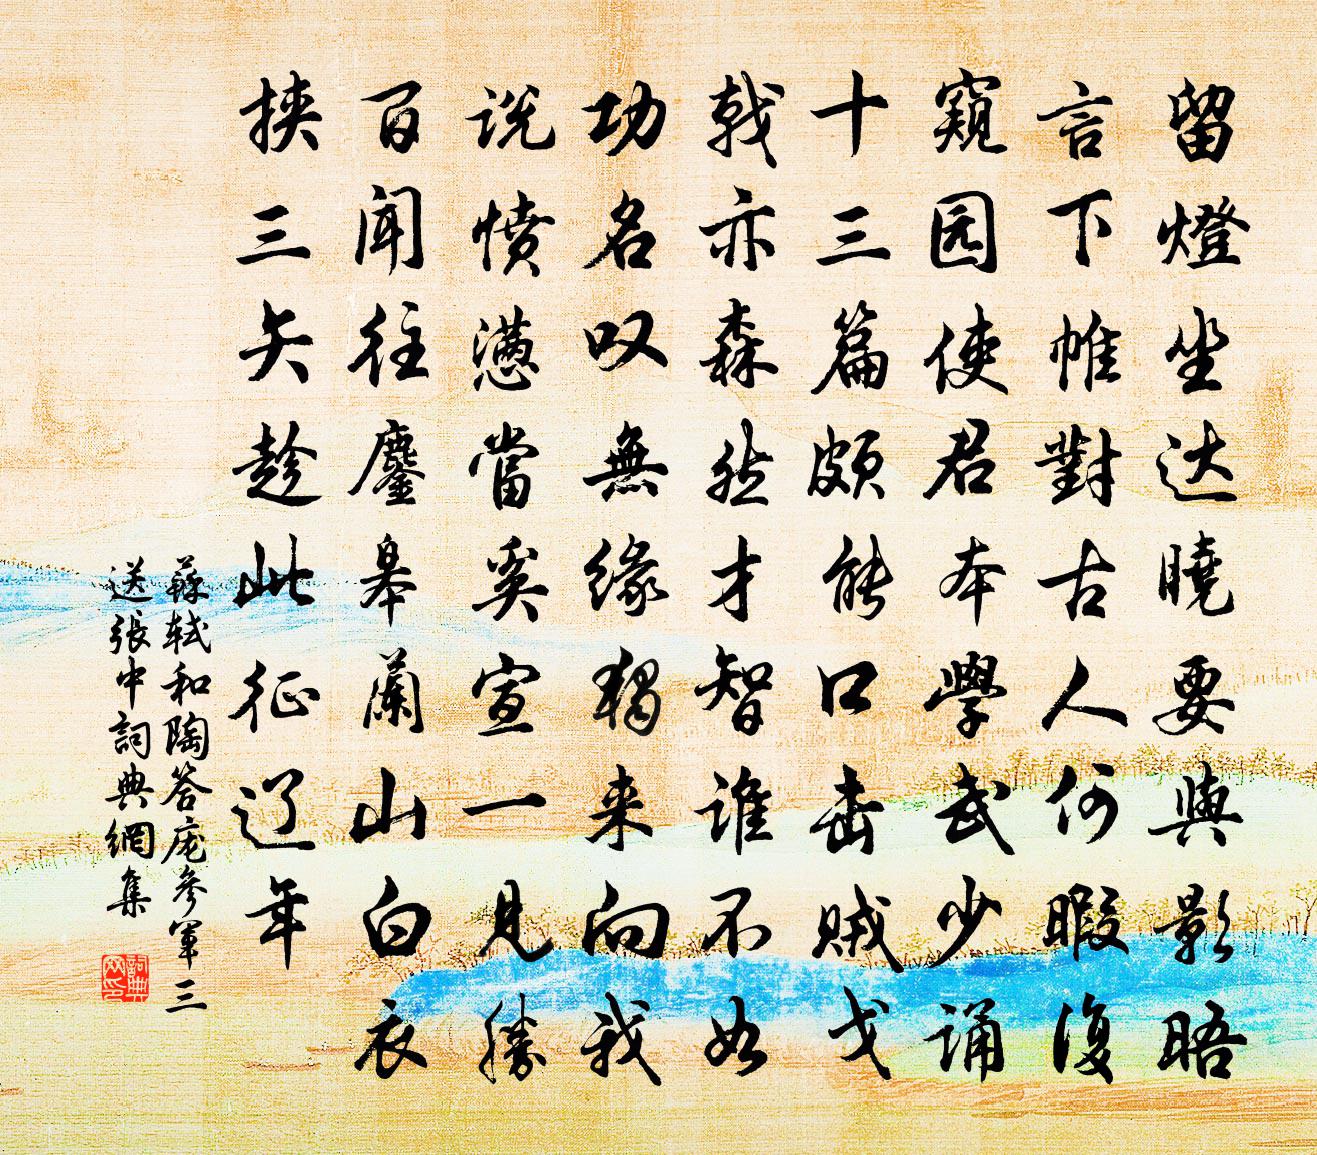 留燈坐达曉要與影晤
言下帷對古人何暇復
窺园使君本學武少诵
十三篇颇能口击贼戈
戟亦森然才智谁不如
功名叹無缘獨来向我
说愤懑當奚宣一見勝
百闻往鏖皋蘭山白衣
挾三矢趁此征辽年
蘇軾和陶答庞參軍三
送張中詞典網集
詞典网印